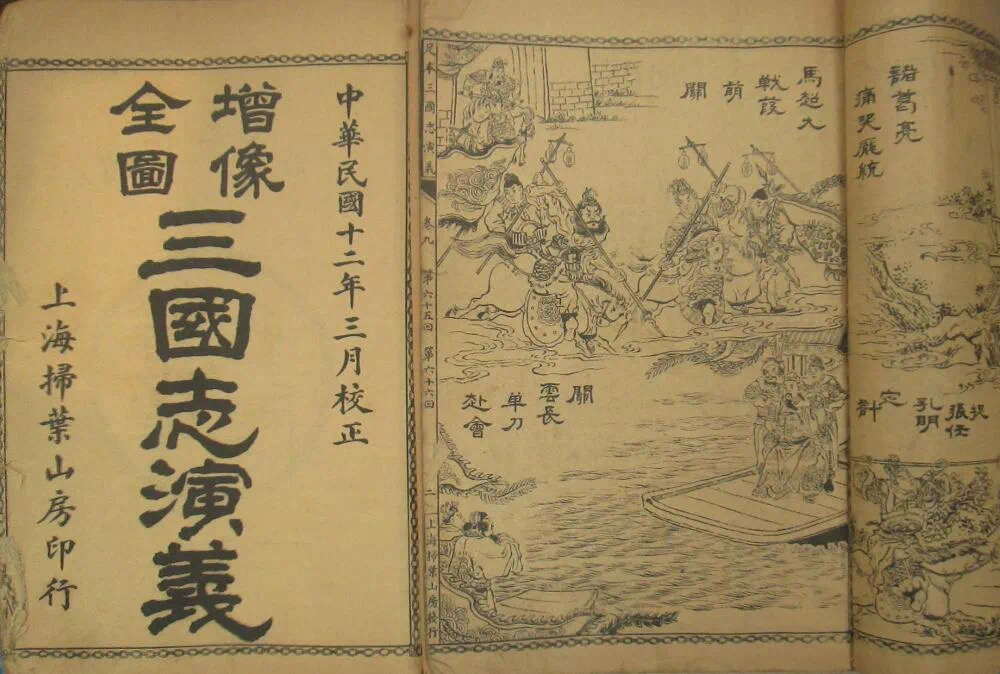 中華民國十二年三月校正
增像
全圖
三國志演義
上海掃葉山房印行
馬超大
戰葭
萌
關
關
雲長
單刀
赴會
足本三國志演義 卷九 第六十五回 第六十六回 二 上海掃葉山房發行
諸葛亮
痛哭龐統
捉
張任
孔明
定
計